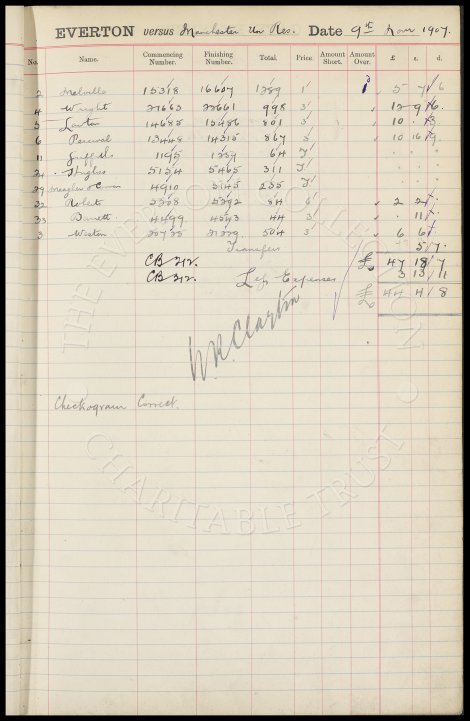 EVERTON versus Manchester Un Res. Date 9th Nov 1907.
No. Name. Commencing Number. Finishing Number. Total. Price Amount Short. Amount Over. £ s. d.
2 Melville 15318 16607 1289 1' 1 5 7 6
4 Wright 21663 22661 998 3' 12 9 6
5 Lawton 14685 15486 801 3' 10
6 Percival 13448 14315 867 3' 10 16 9
11 1195 1259 64 F'
24 Hughes 5154 5465 311 F'
29 4910 5145 235 F'
32 Roberts 5308 5392 84 6' 2 2
33 Burnett 4499 4543 44 3' 11
3 Weston 504 3' 6 6
Transfers 5 7
CB 212. £ 47 18 7
CB 212. Less Expenses 3 13 11
£ 44 4 8
W.R. Clayton
Checkogram Correct.
THE EVERTON COLLECTION
CHARITABLE TRUST